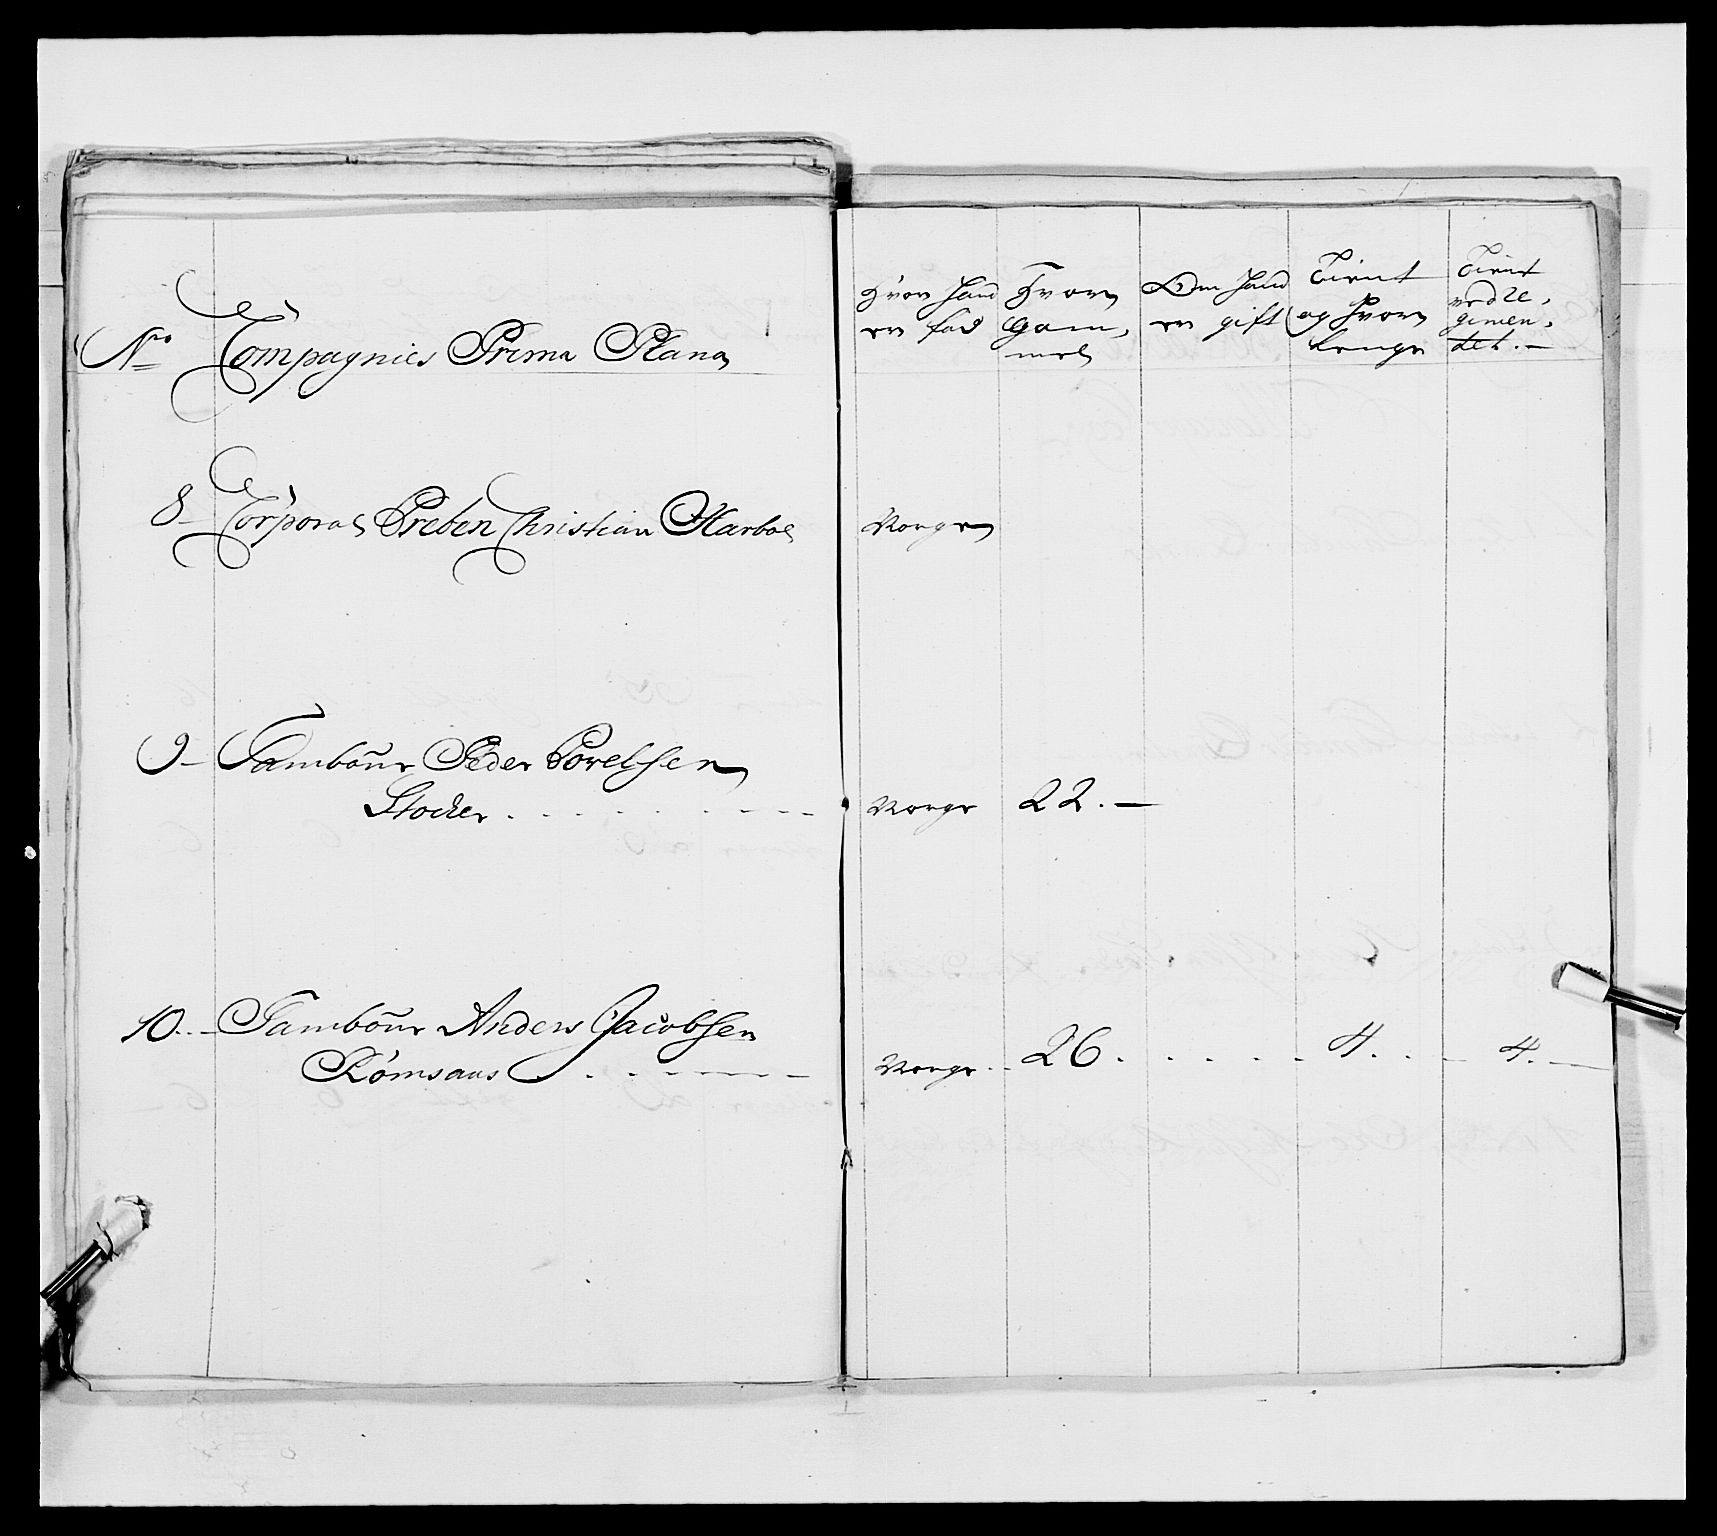 No Compagnies Prima Plana
Hvor hand er fød
Hvor gammel
Om hand er gift
Tient og Hvor lenge
Tient ved Regimentet.
8 Corporal Preben Christian Harboe Norge
9 Tambour Peder Povelsen
Stocker Norge 22.
10. Tambour Anders Jacobsen
Rømsaas Norge 26. 4. 4.